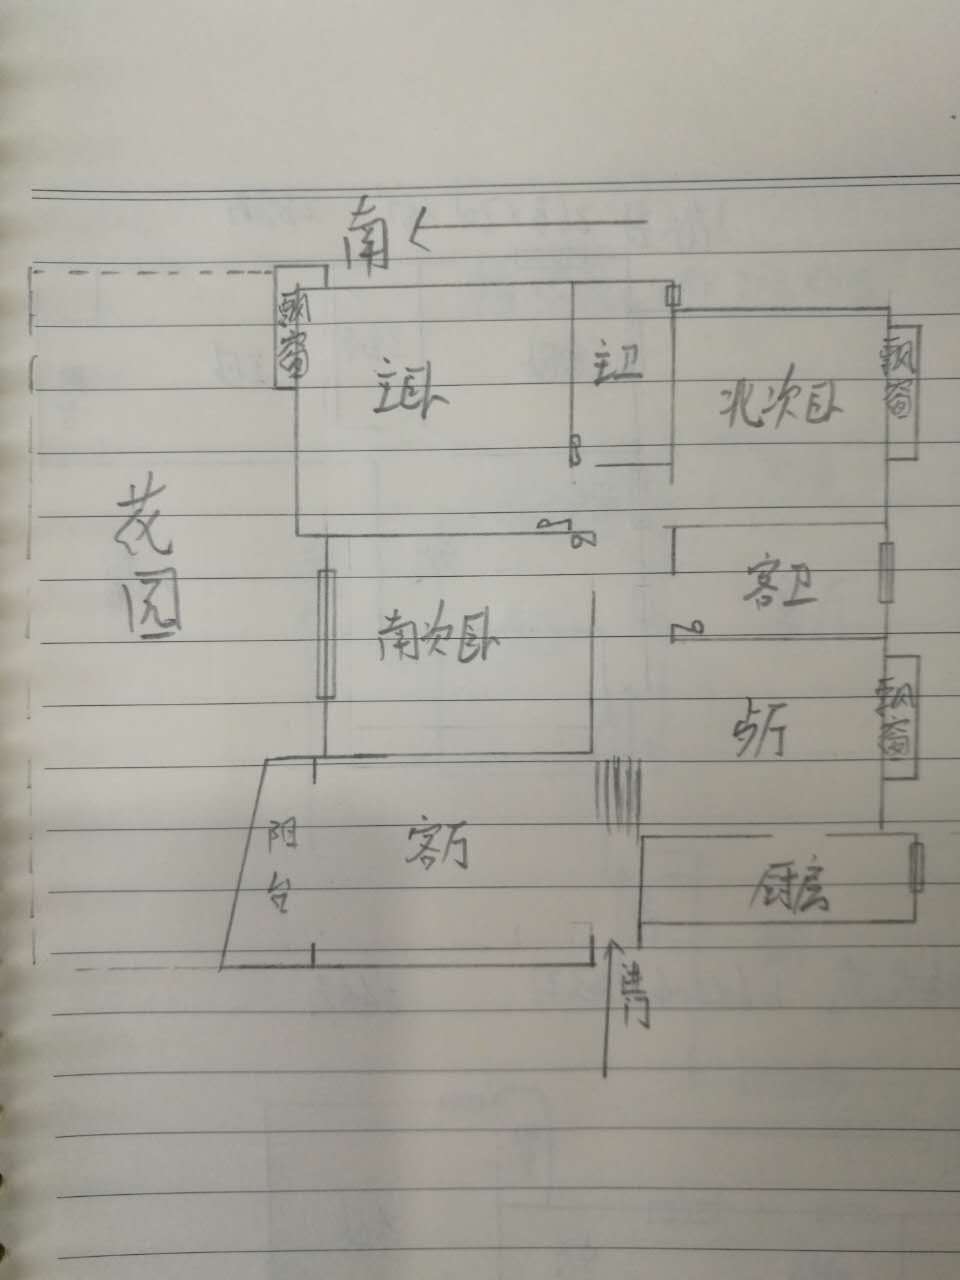 南
飘窗
主卧
主卫
北次卧
飘窗
花园
南次卧
客卫
飘窗
歺厅
阳台
客厅
厨房
进门